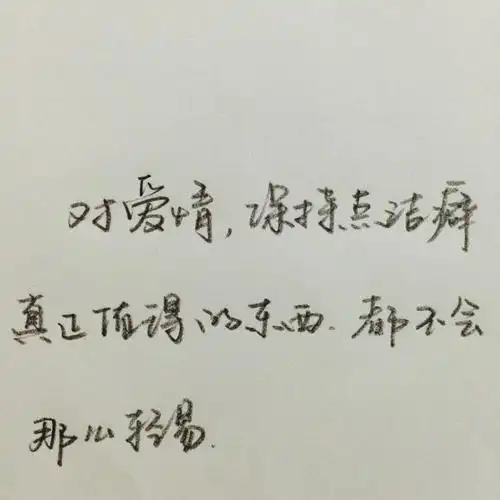 对爱情,保持点洁癖
真正值得的东西.都不会
那么轻易.